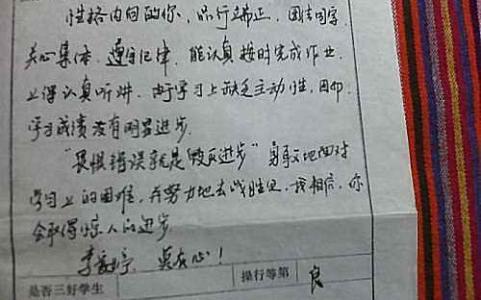 性格内向的你，品行端正，团结同学，
关心集体，遵守纪律，能认真按时完成作业，
上课认真听讲，由于学习上缺乏主动性，因而
学习成绩没有明显进步。
"畏惧错误就是毁灭进步"勇敢地面对
学习上的困难，并努力地去战胜它，我相信，你
会取得惊人的进步
李 真在心！
是否三好学生 操行等第 良